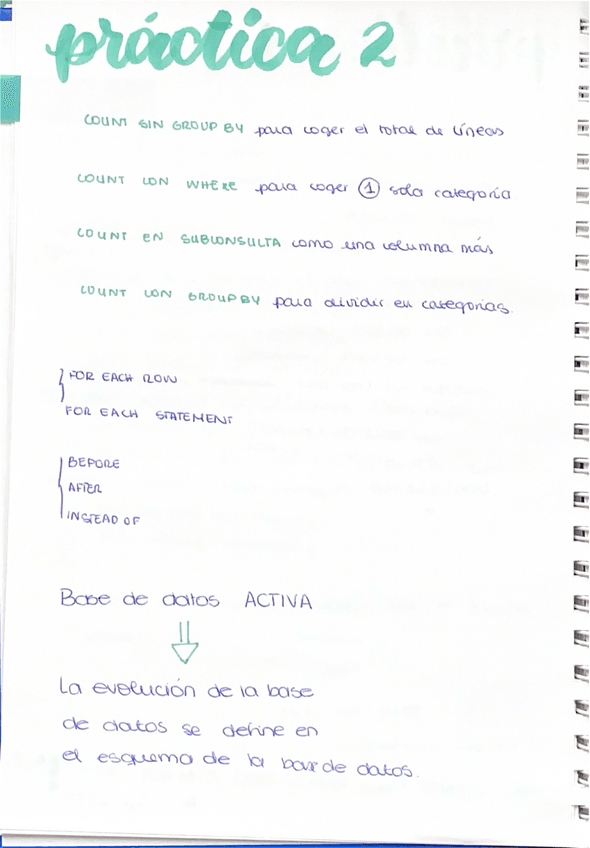 práctica 2
COUNT SIN GROUP BY para coger el total de líneas
COUNT CON WHERE para coger 1 sola categoría
COUNT EN SUBCONSULTA como una columna más
COUNT CON GROUP BY para dividir en categorías.
FOR EACH ROW
FOR EACH STATEMENT
BEFORE
AFTER
INSTEAD OF
Base de datos ACTIVA
La evolución de la base
de datos se define en
el esquema de la base de datos.